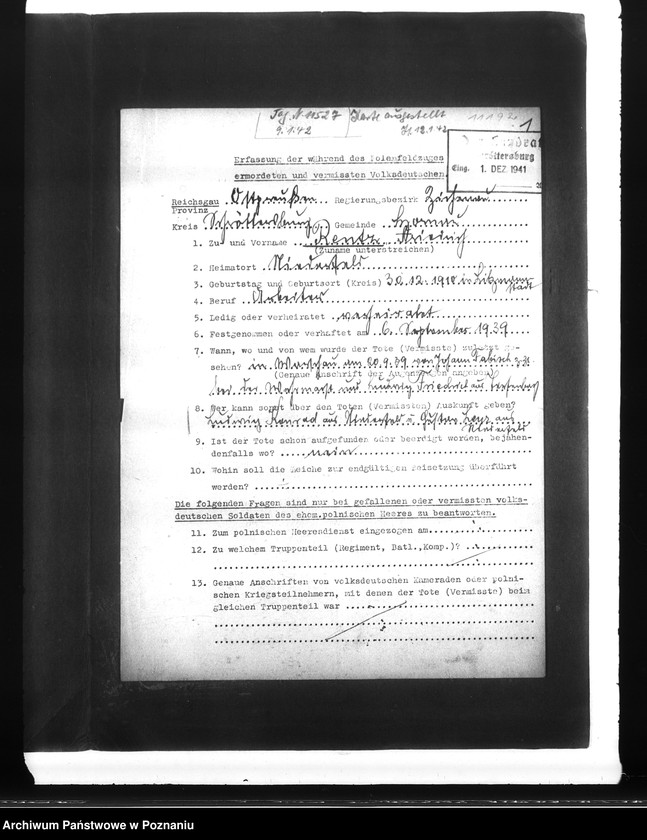 Tag. N. 11527
9.1.42
Karte ausgestellt
12.1.42
11192
1
Eing. 1. DEZ 1941
Erfassung der während des Polenfeldzuges
ermordeten und vermissten Volksdeutschen.
Reichsgau Ostpreußen Regierungsbezirk Zichenau
Provinz
Kreis Schröttersburg Gemeinde
1. Zu- und Vorname Rentz, Friedrich
(Zuname unterstreichen)
2. Heimatort Niederfeld
3. Geburtstag und Geburtsort (Kreis) 30.12.1910 in Litzmann-
stadt
4. Beruf Arbeiter
5. Ledig oder verheiratet verheiratet
6. Festgenommen oder verhaftet am 6. September 1939
7. Wann, wo und von wem wurde der Tote (Vermisste) zuletzt ge-
sehen? in Warschau am 20.9.39 von Johann
(Genaue Anschrift der Augenzeugen angeben)
bei der Wehrmacht und Ludwig Friedrich aus
8. Wer kann sonst über den Toten (Vermissten) Auskunft geben?
Ludwig Konrad aus Niederfeld u. Gustav aus
Niederfeld
9. Ist der Tote schon aufgefunden oder beerdigt worden, bejahen-
denfalls wo? nein
10. Wohin soll die Leiche zur endgültigen Beisetzung überführt
werden?
Die folgenden Fragen sind nur bei gefallenen oder vermissten volks-
deutschen Soldaten des ehem.polnischen Heeres zu beantworten.
11. Zum polnischen Heerendienst eingezogen am
12. Zu welchem Truppenteil (Regiment, Batl.,Komp.)?
13. Genaue Anschriften von volksdeutschen Kameraden oder polni-
schen Kriegsteilnehmern, mit denen der Tote (Vermisste) beim
gleichen Truppenteil war
Archiwum Państwowe w Poznaniu